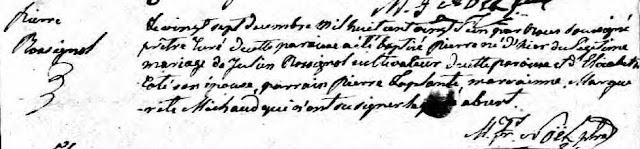 Pierre
Rossignol
Le vingt sept decembre mil huit cent vingt un par nous soussigné
prêtre curé de cette paroisse a été baptisé Pierre né d'hier du légitime
mariage de Julien Rossignol cultivateur de cette paroisse et d'Elizabeth
Coté son épouse, parrain Pierre Laplante, marrainne Margue
rite Michaud qui n'ont su signer le père absent.
M. Fr. Noël ptre